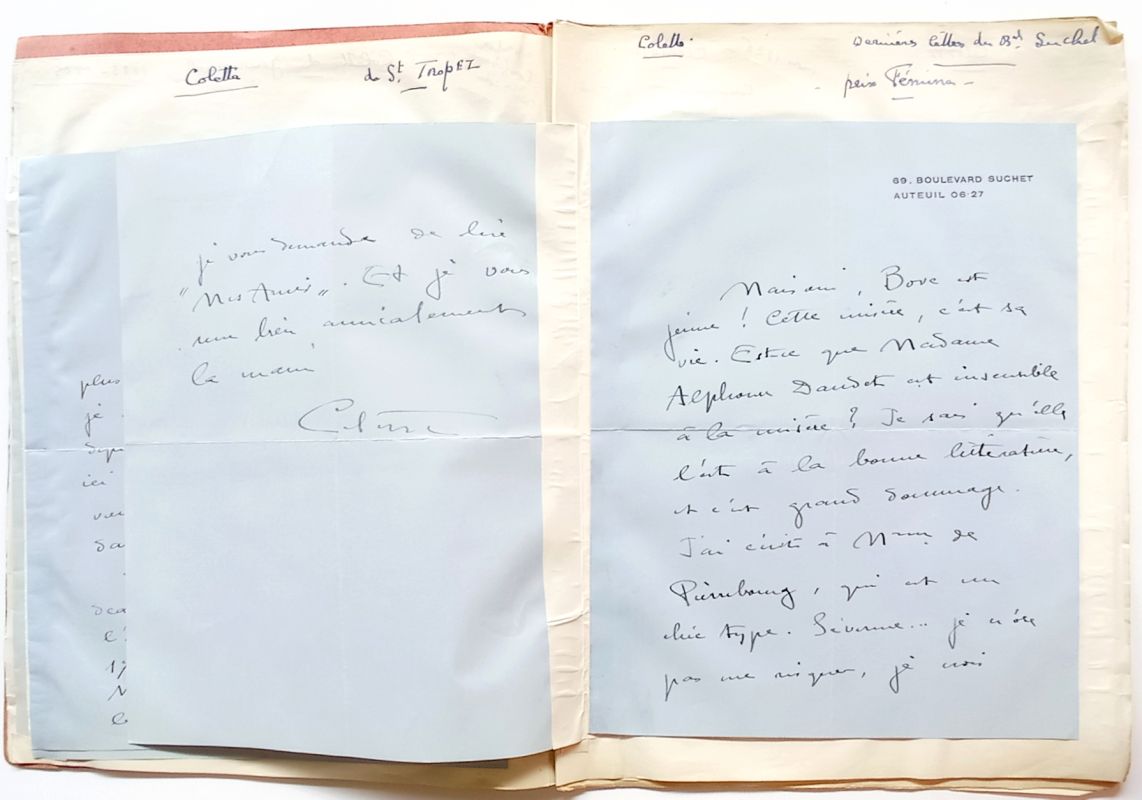 Colette
de St. Tropez
plus
je
ici
vien
da
je vous demande de lire
"Mes Amis". Et je vous
serre bien amicalement
la main
Colette
Colette
Dernières lettres du Bd. Suchet
prix Fémina -
69, BOULEVARD SUCHET
AUTEUIL 06-27
Mais oui, Bove est
jeune ! Cette misère, c'est sa
vie. Est-ce que Madame
Alphonse Daudet est insensible
à la misère ? Je sais qu'elle
l'est à la bonne littérature,
et c'est grand dommage.
J'ai écrit à Mme de
Pierrebourg, qui est un
chic type. Séverine... je n'ose
pas me risquer, je crois